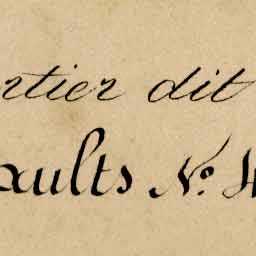 rtier dit
aults No. 4